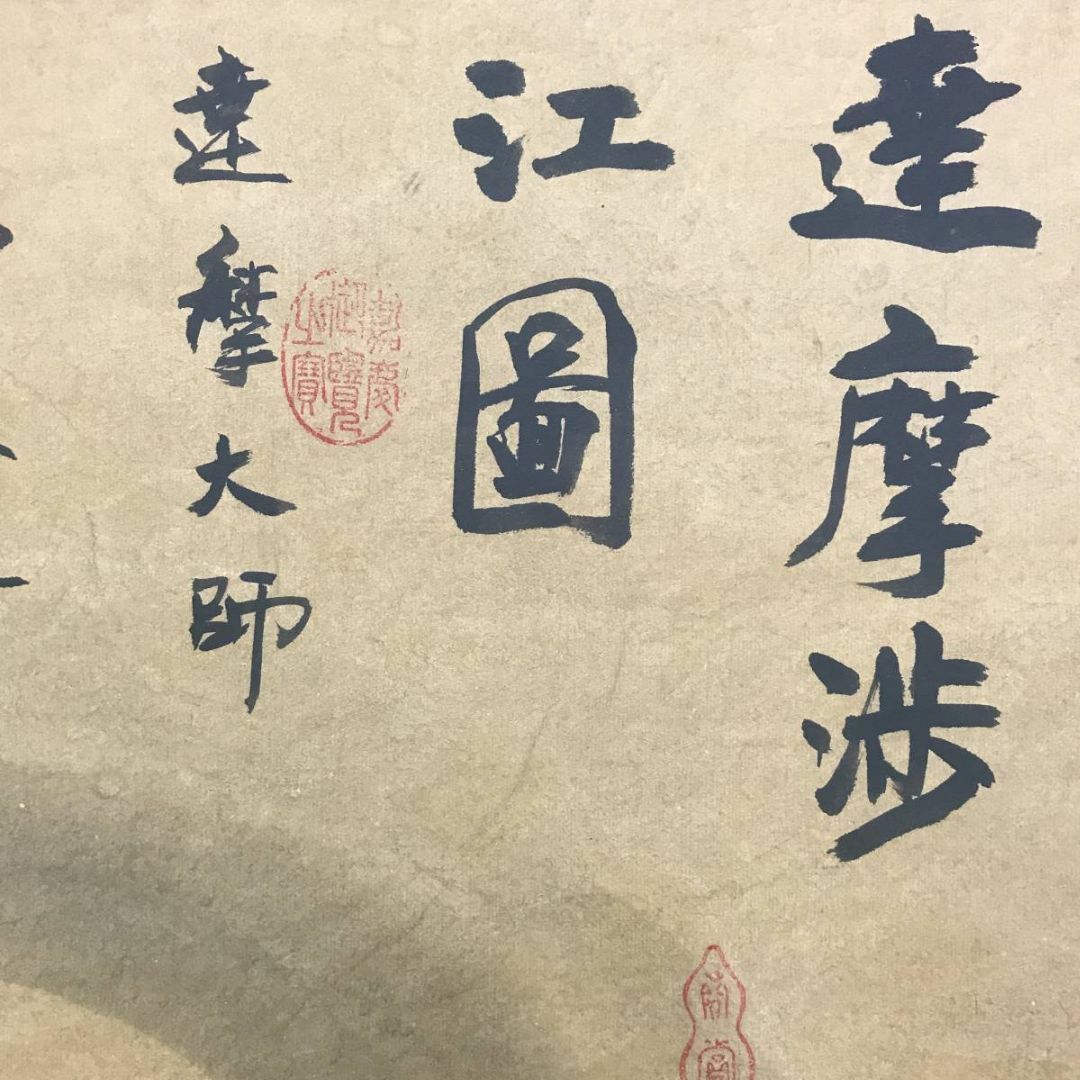 達摩渉
江圖
達摩大師
嘉慶
御覽
之寶